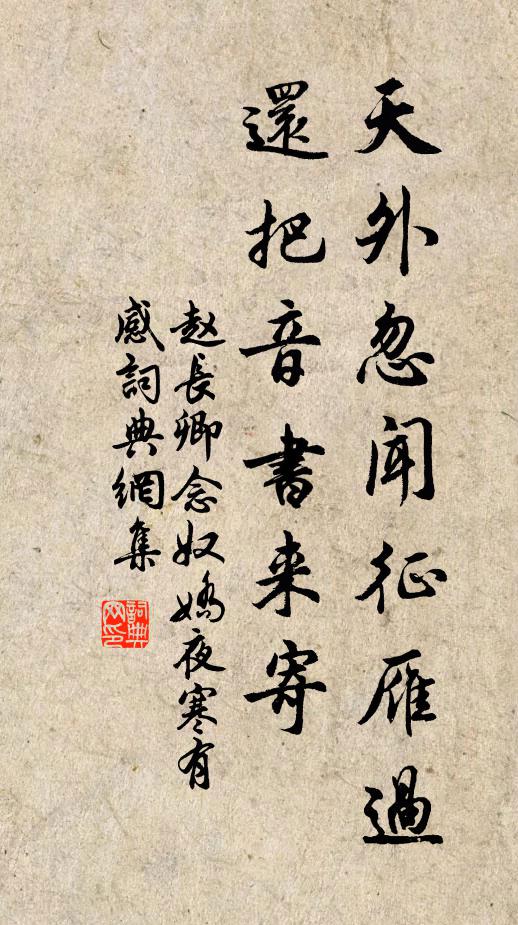 天外忽闻征雁過
還把音書来寄
赵長卿念奴嬌夜寒有
感詞典網集
詞典网印